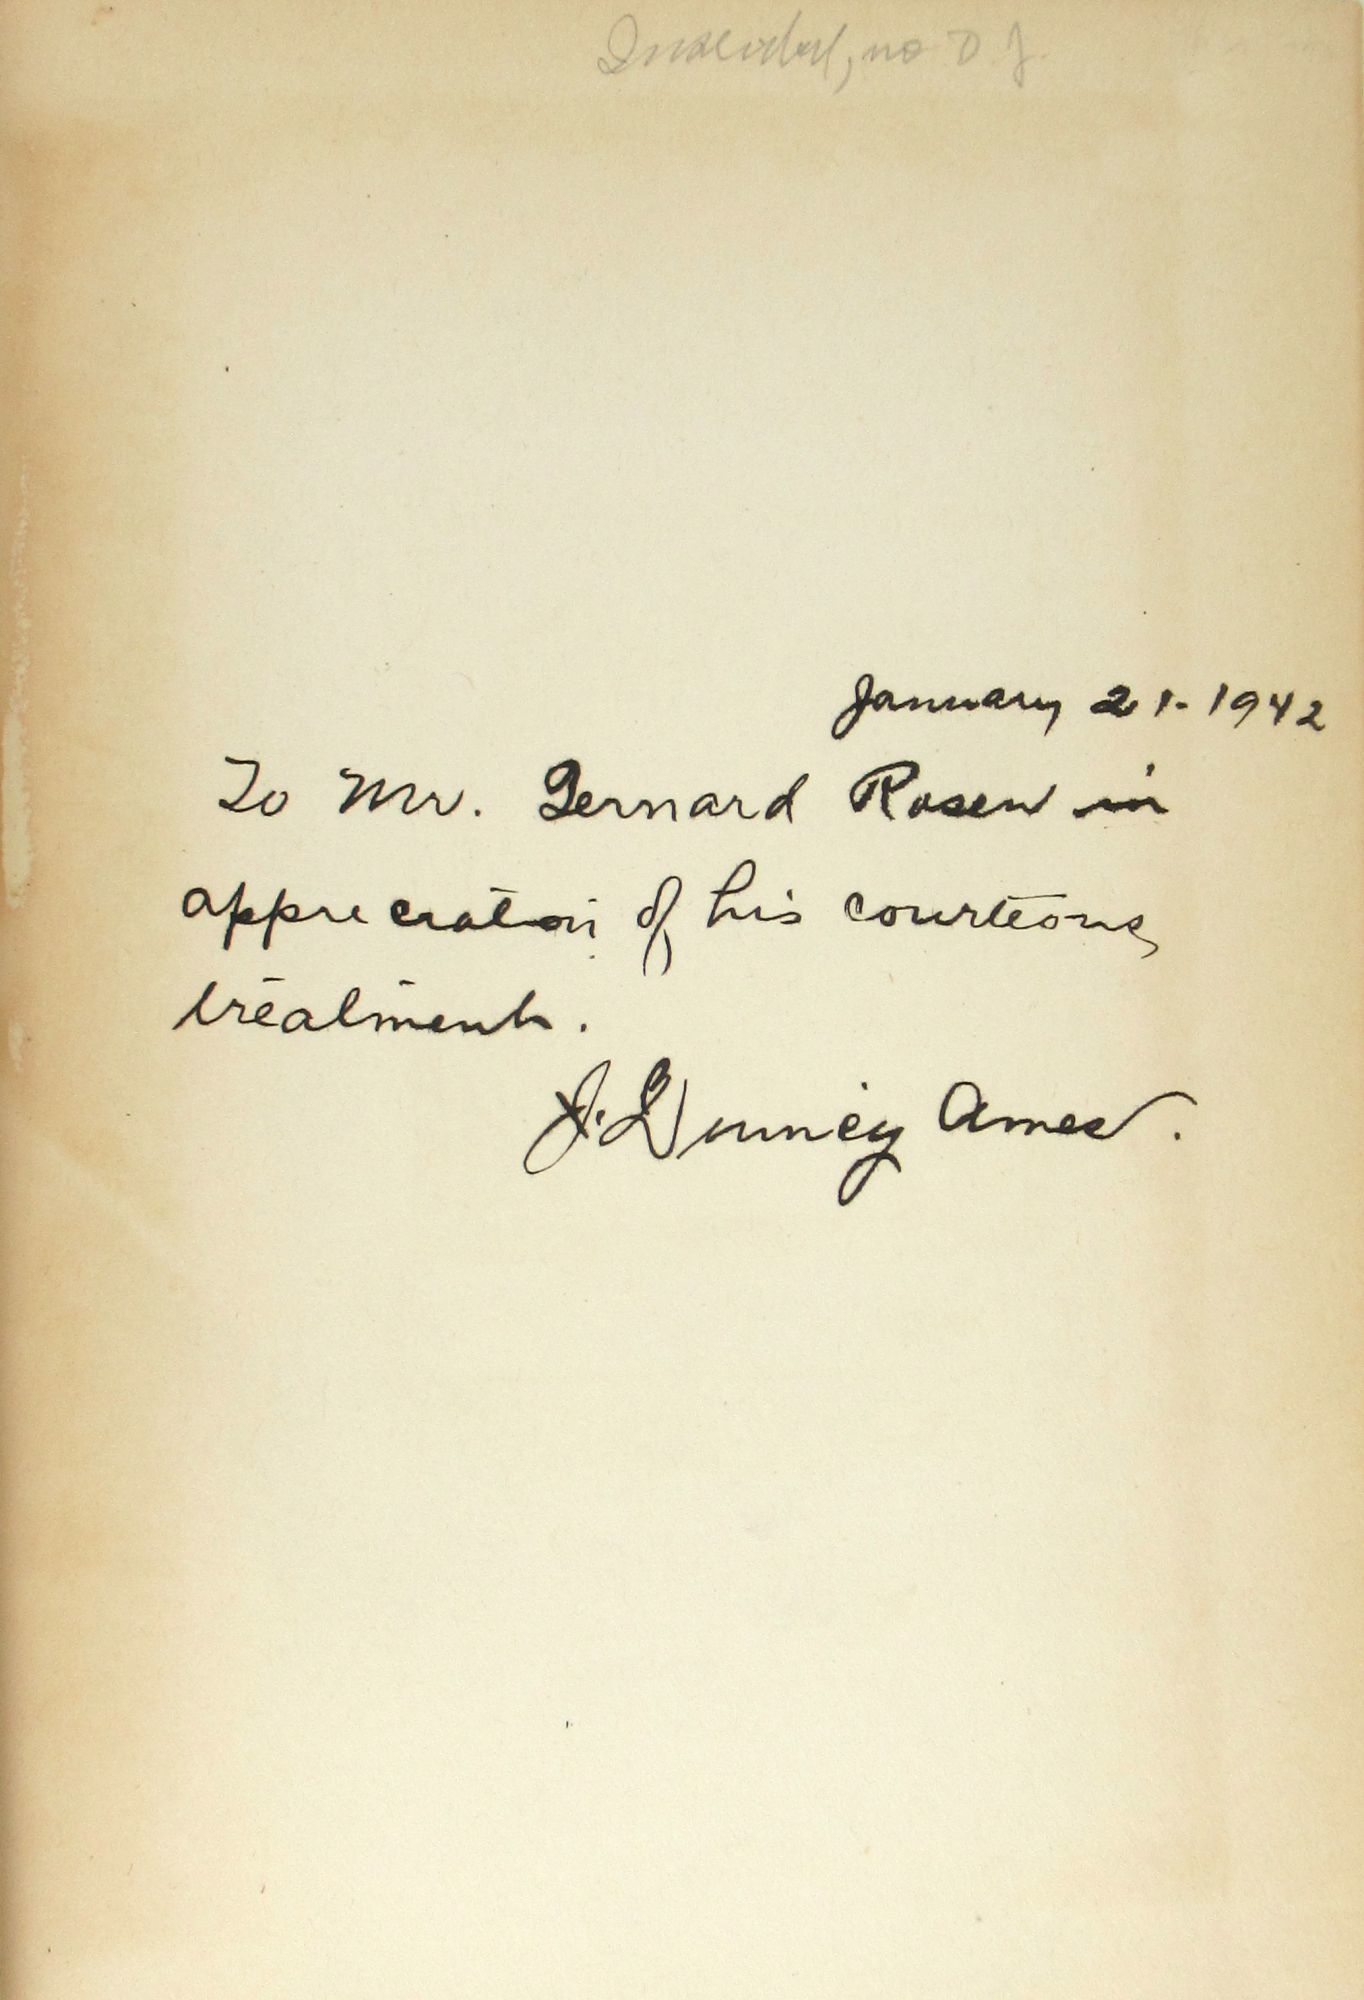 Inscribed, no DJ.
January 21-1942
To Mr. Bernard Rosen in
appreciation of his courteous
treatment.
J. Quincy Ames.